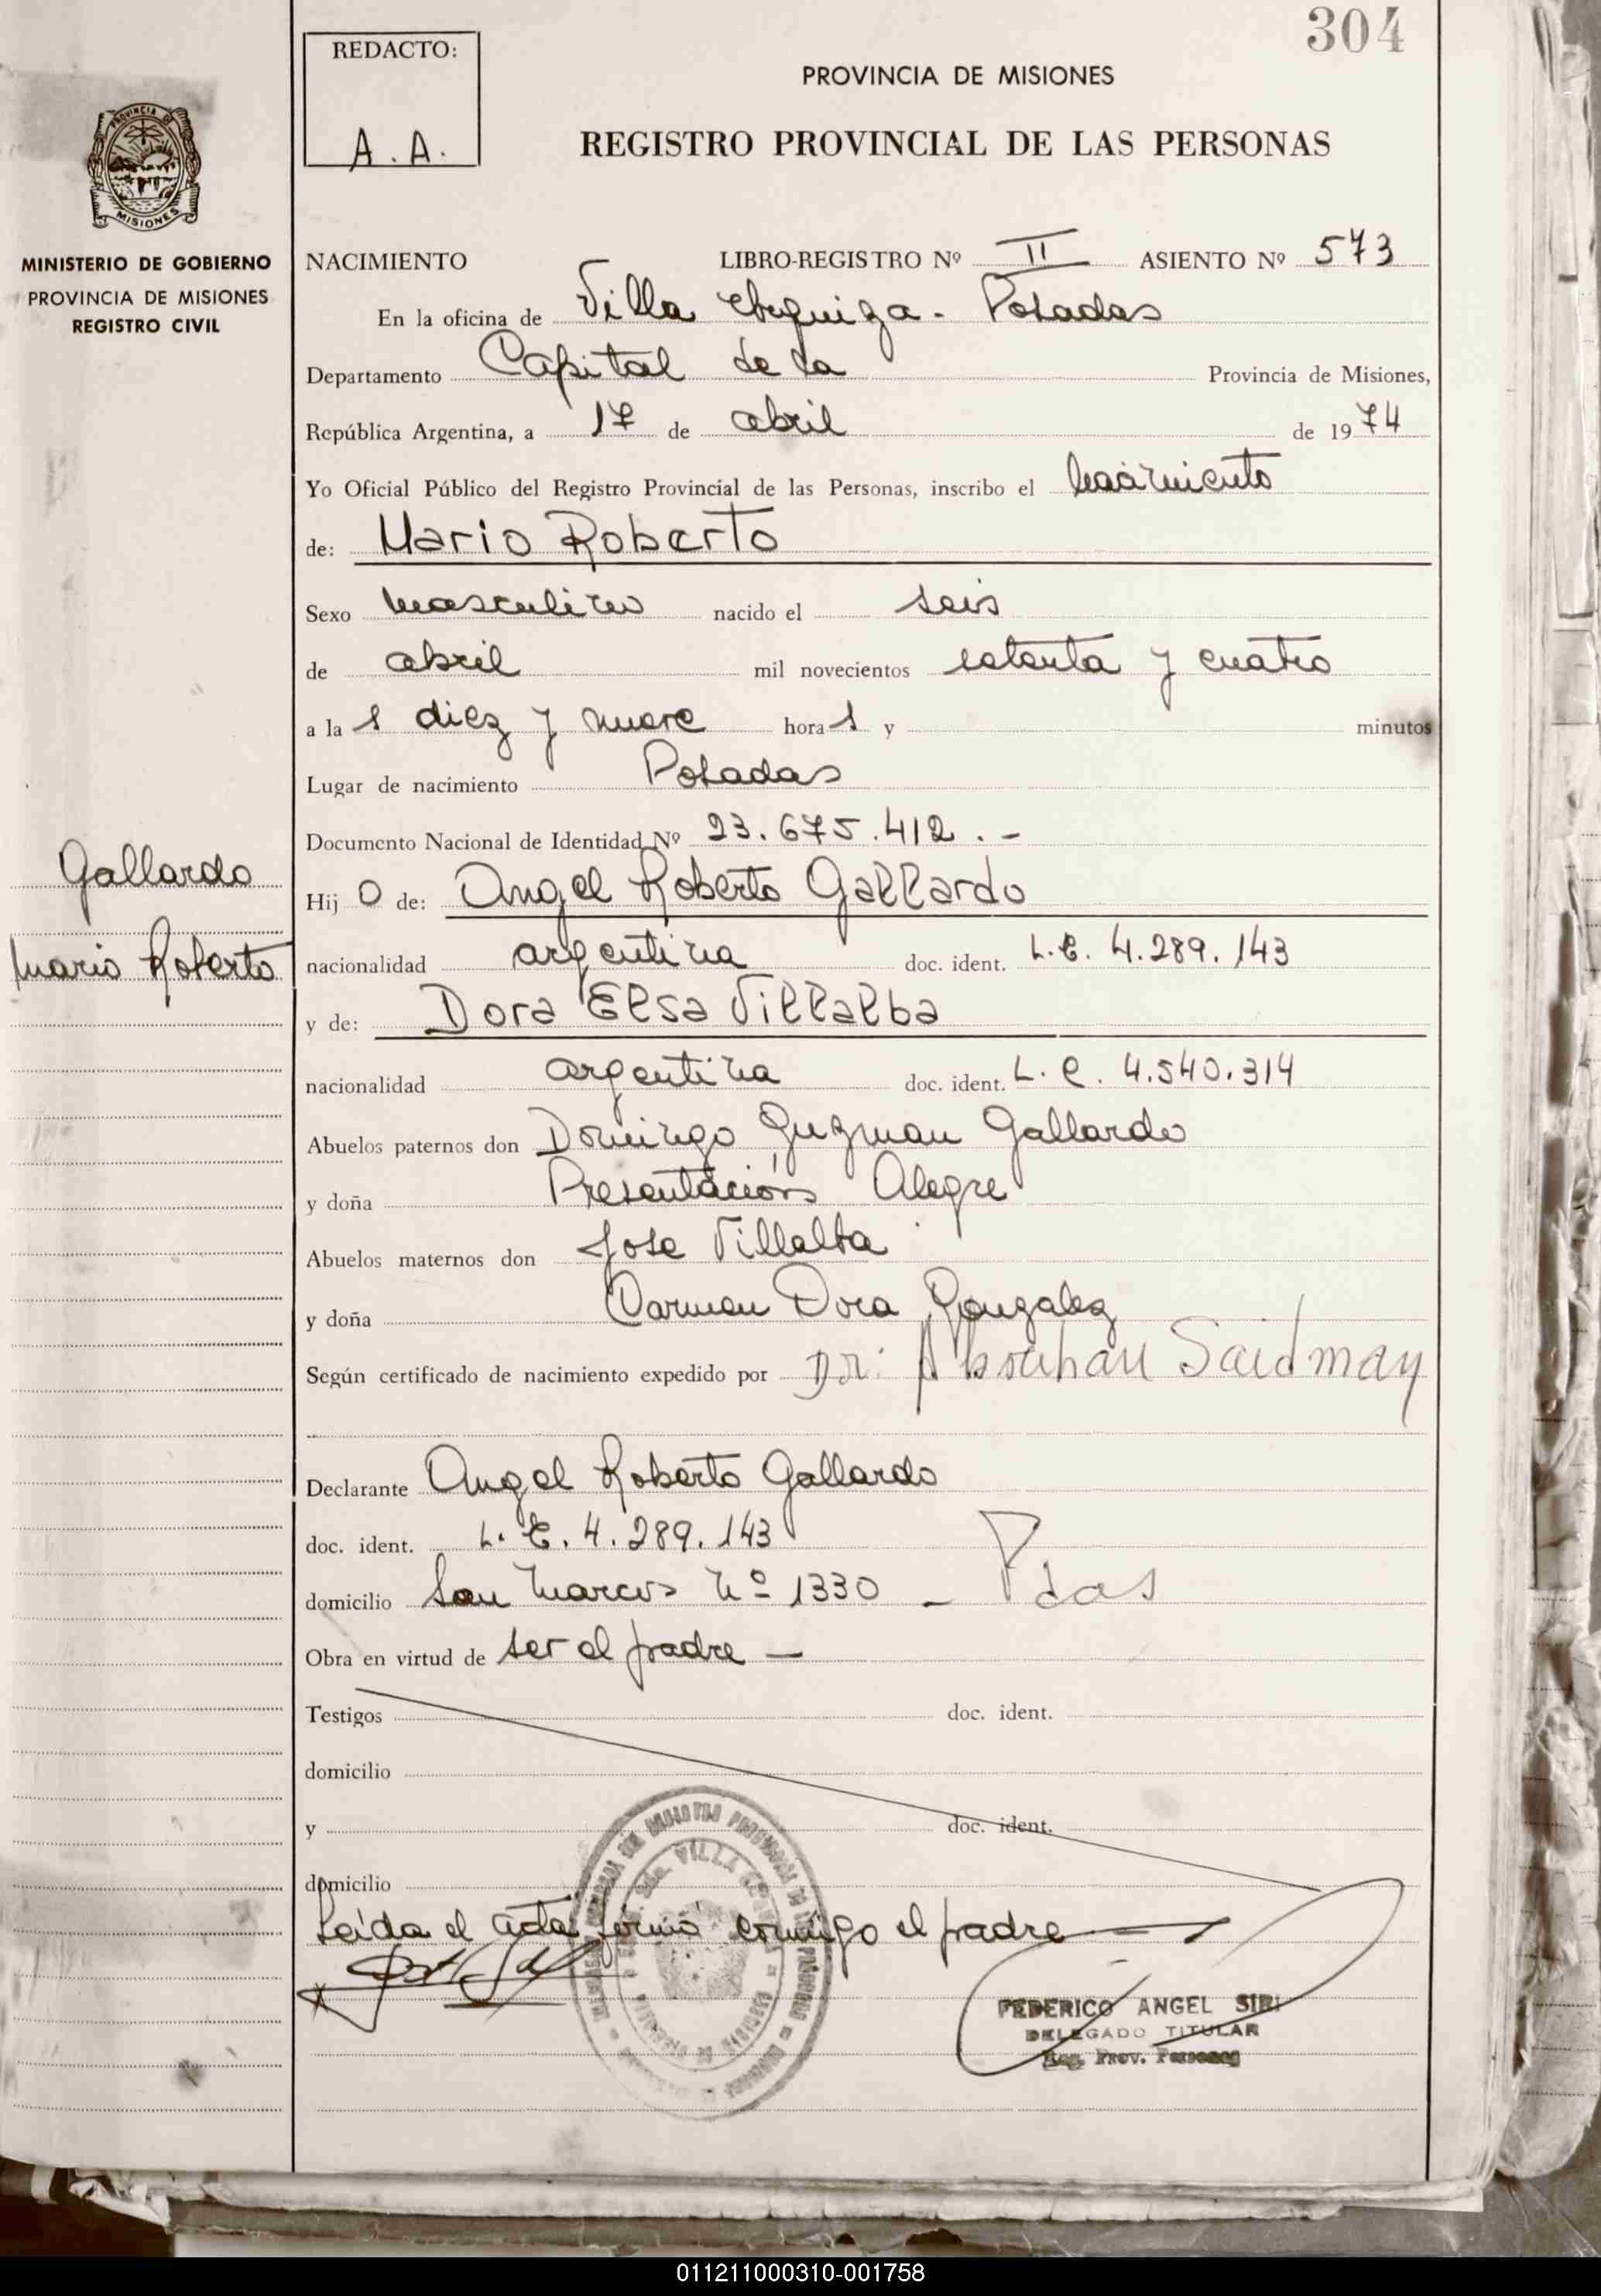 304
REDACTO:
A. A.
PROVINCIA DE MISIONES
REGISTRO PROVINCIAL DE LAS PERSONAS
PROVINCIA DE
MISIONES
MINISTERIO DE GOBIERNO
PROVINCIA DE MISIONES
REGISTRO CIVIL
NACIMIENTO LIBRO-REGISTRO Nº II ASIENTO Nº 573
En la oficina de Villa Urquiza - Posadas
Departamento Capital de la Provincia de Misiones,
República Argentina, a 17 de abril de 1974
Yo Oficial Público del Registro Provincial de las Personas, inscribo el nacimiento
de: Mario Roberto
Sexo masculino nacido el seis
de abril mil novecientos setenta y cuatro
a las diez y nueve horas y minutos
Lugar de nacimiento Posadas
Documento Nacional de Identidad Nº 23.675.412.-
Gallardo
Mario Roberto
Hijo de: Angel Roberto Gallardo
nacionalidad argentina doc. ident. L.E. 4.289.143
y de: Dora Elsa Villalba
nacionalidad argentina doc. ident. L.C. 4.540.314
Abuelos paternos don Domingo Guzman Gallardo
y doña Presentación Alegre
Abuelos maternos don Jose Villalba
y doña Carmen Dora Gonzalez
Según certificado de nacimiento expedido por Dr. Abrahan Saidman
Declarante Angel Roberto Gallardo
doc. ident. L.E. 4.289.143
domicilio San Marcos Nº 1330 - Pdas
Obra en virtud de ser el padre -
Testigos doc. ident.
domicilio
y doc. ident.
domicilio
Leída el acta firma conmigo el padre
FEDERICO ANGEL SIRI
DELEGADO TITULAR
Reg. Prov. Personas
011211000310-001758